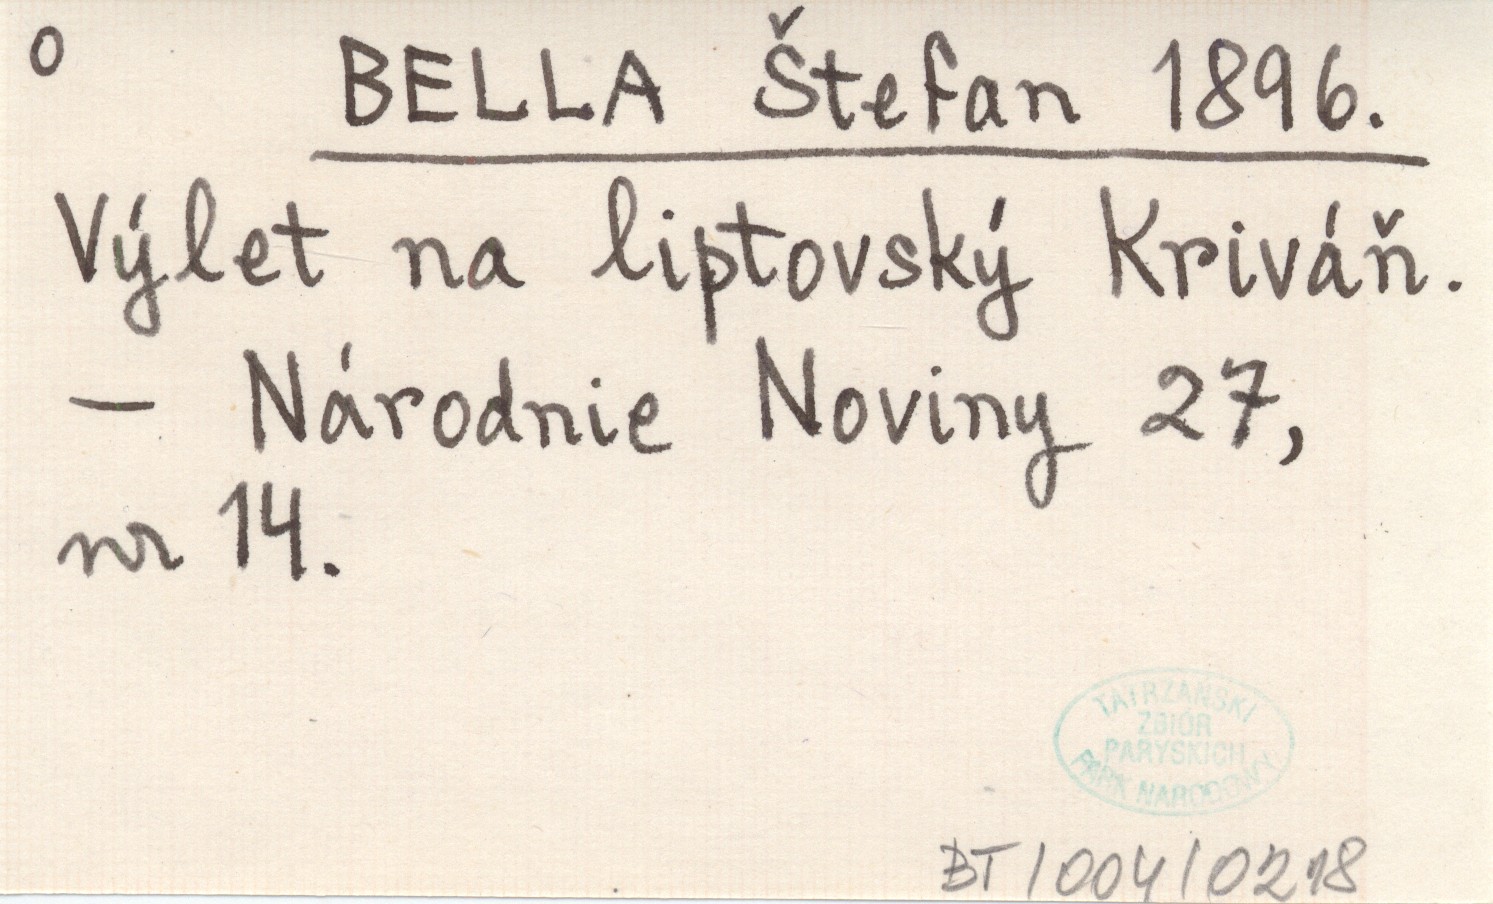 o BELLA Štefan 1896.
Výlet na liptovský Kriváň.
- Národnie Noviny 27,
nr 14.
TATRZAŃSKI
ZBIÓR
PARYSKICH
PARK NARODOWY
BT/004/0218